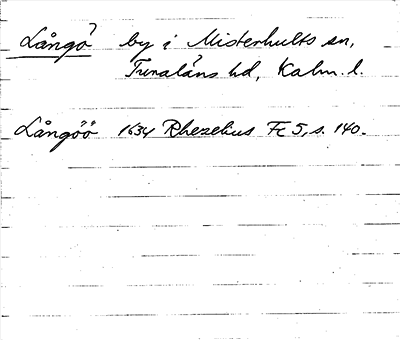 Långö by i Misterhults sn,
Tunaläns hd, Kalm. l.
Långöö 1634 Rhezelius Fc 5, s. 140.